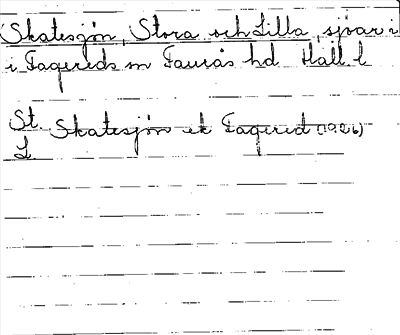 Skatesjön, Stora och Lilla, sjöar i
i Fagereds sn Faurås hd Hall l
St. Skatesjön ek Fagered (1926)
L.